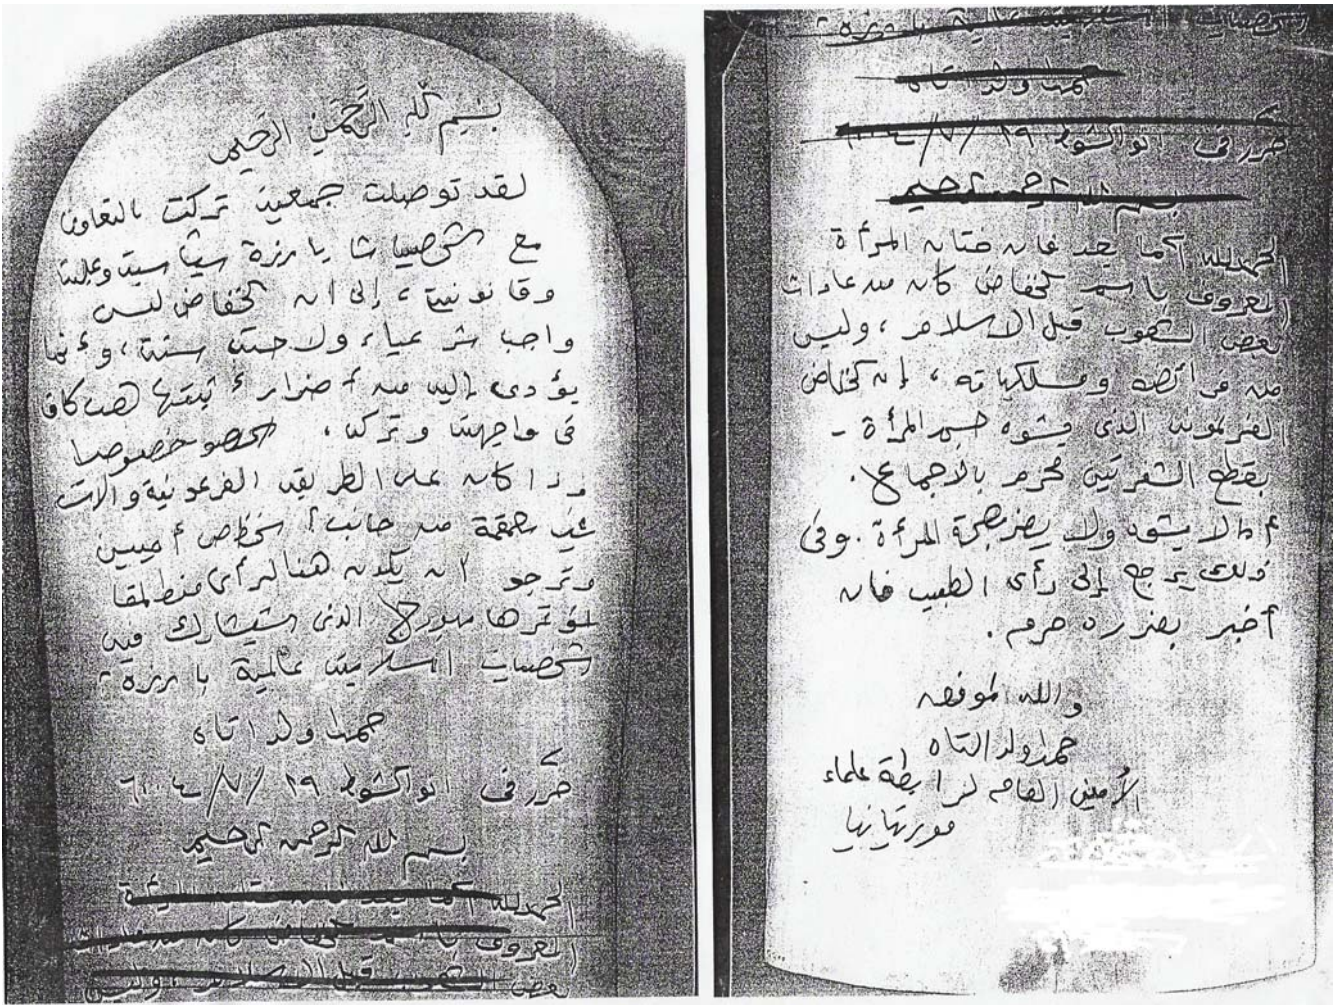 بسم الله الرحمن الرحيم
لقد توصلت جمعيتة تركت بالتعاون
مع شخصيات بارزة سياسية وعلمية
وقانونية، إلى أن الخفاض ليس
واجب شرعيا، ولا حتى سنة، وأنها
يؤدي إليه من أضرار أثبتها الطب كاف
في مواجهته وتركه، خصوصا
إذا كان على الطريقة الفرعونية والآت
من جانب أشخاص أميين
ونرجو أن يكون هنا الرأي منطلقا
لمؤتمر الذي ستشارك فيه
شخصيات إسلامية عالمية بارزة
حمدا ولد اتاه
حرر في انواكشوط ١٩ /٧/
بسم الله الرحمن الرحيم
الحمد لله أما بعد فإن ختان المرأة
المعروف باسم الخفاض كان من عادات
بعض الشعوب قبل الإسلام، وليس
شخصيات إسلامية عالمية بارزة
حمدا ولد اتاه
حرر في انواكشوط ١٩ /٧/
بسم الله الرحمن الرحيم
الحمد لله أما بعد فإن ختان المرأة
المعروف باسم الخفاض كان من عادات
بعض الشعوب قبل الاسلام، وليس
من فرائضه ومسلكياته، إن الخفاض
الفرعوني الذي يشوه جسم المرأة -
بقطع الشفرتين محرم بالاجماع.
أما لا يشوه ولا يضر بصحة المرأة. وفي
ذلك يرجع إلى رأي الطبيب فان
أخبر بضرره حرم.
والله الموفق
حمدا ولد التاه
الأمين العام لرابطة علماء
موريتانيا